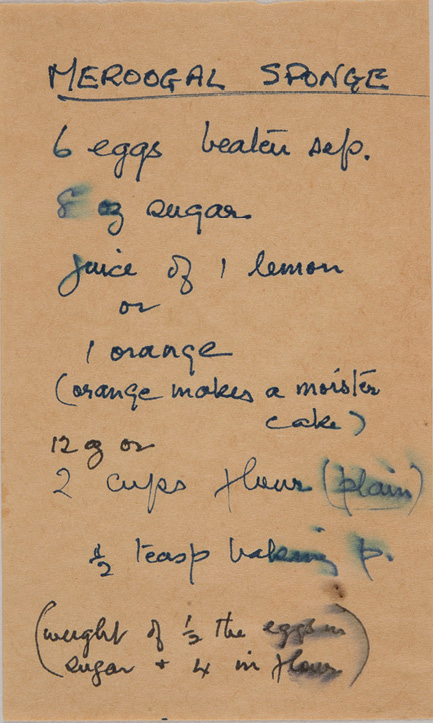 MEROOGAL SPONGE
6 eggs beaten sep.
8 oz sugar
juice of 1 lemon
or
1 orange
(orange makes a moister
cake)
12 oz or
2 cups flour (plain)
½ teasp baking p.
(weight of ½ the eggs in
sugar + 4 in flour)